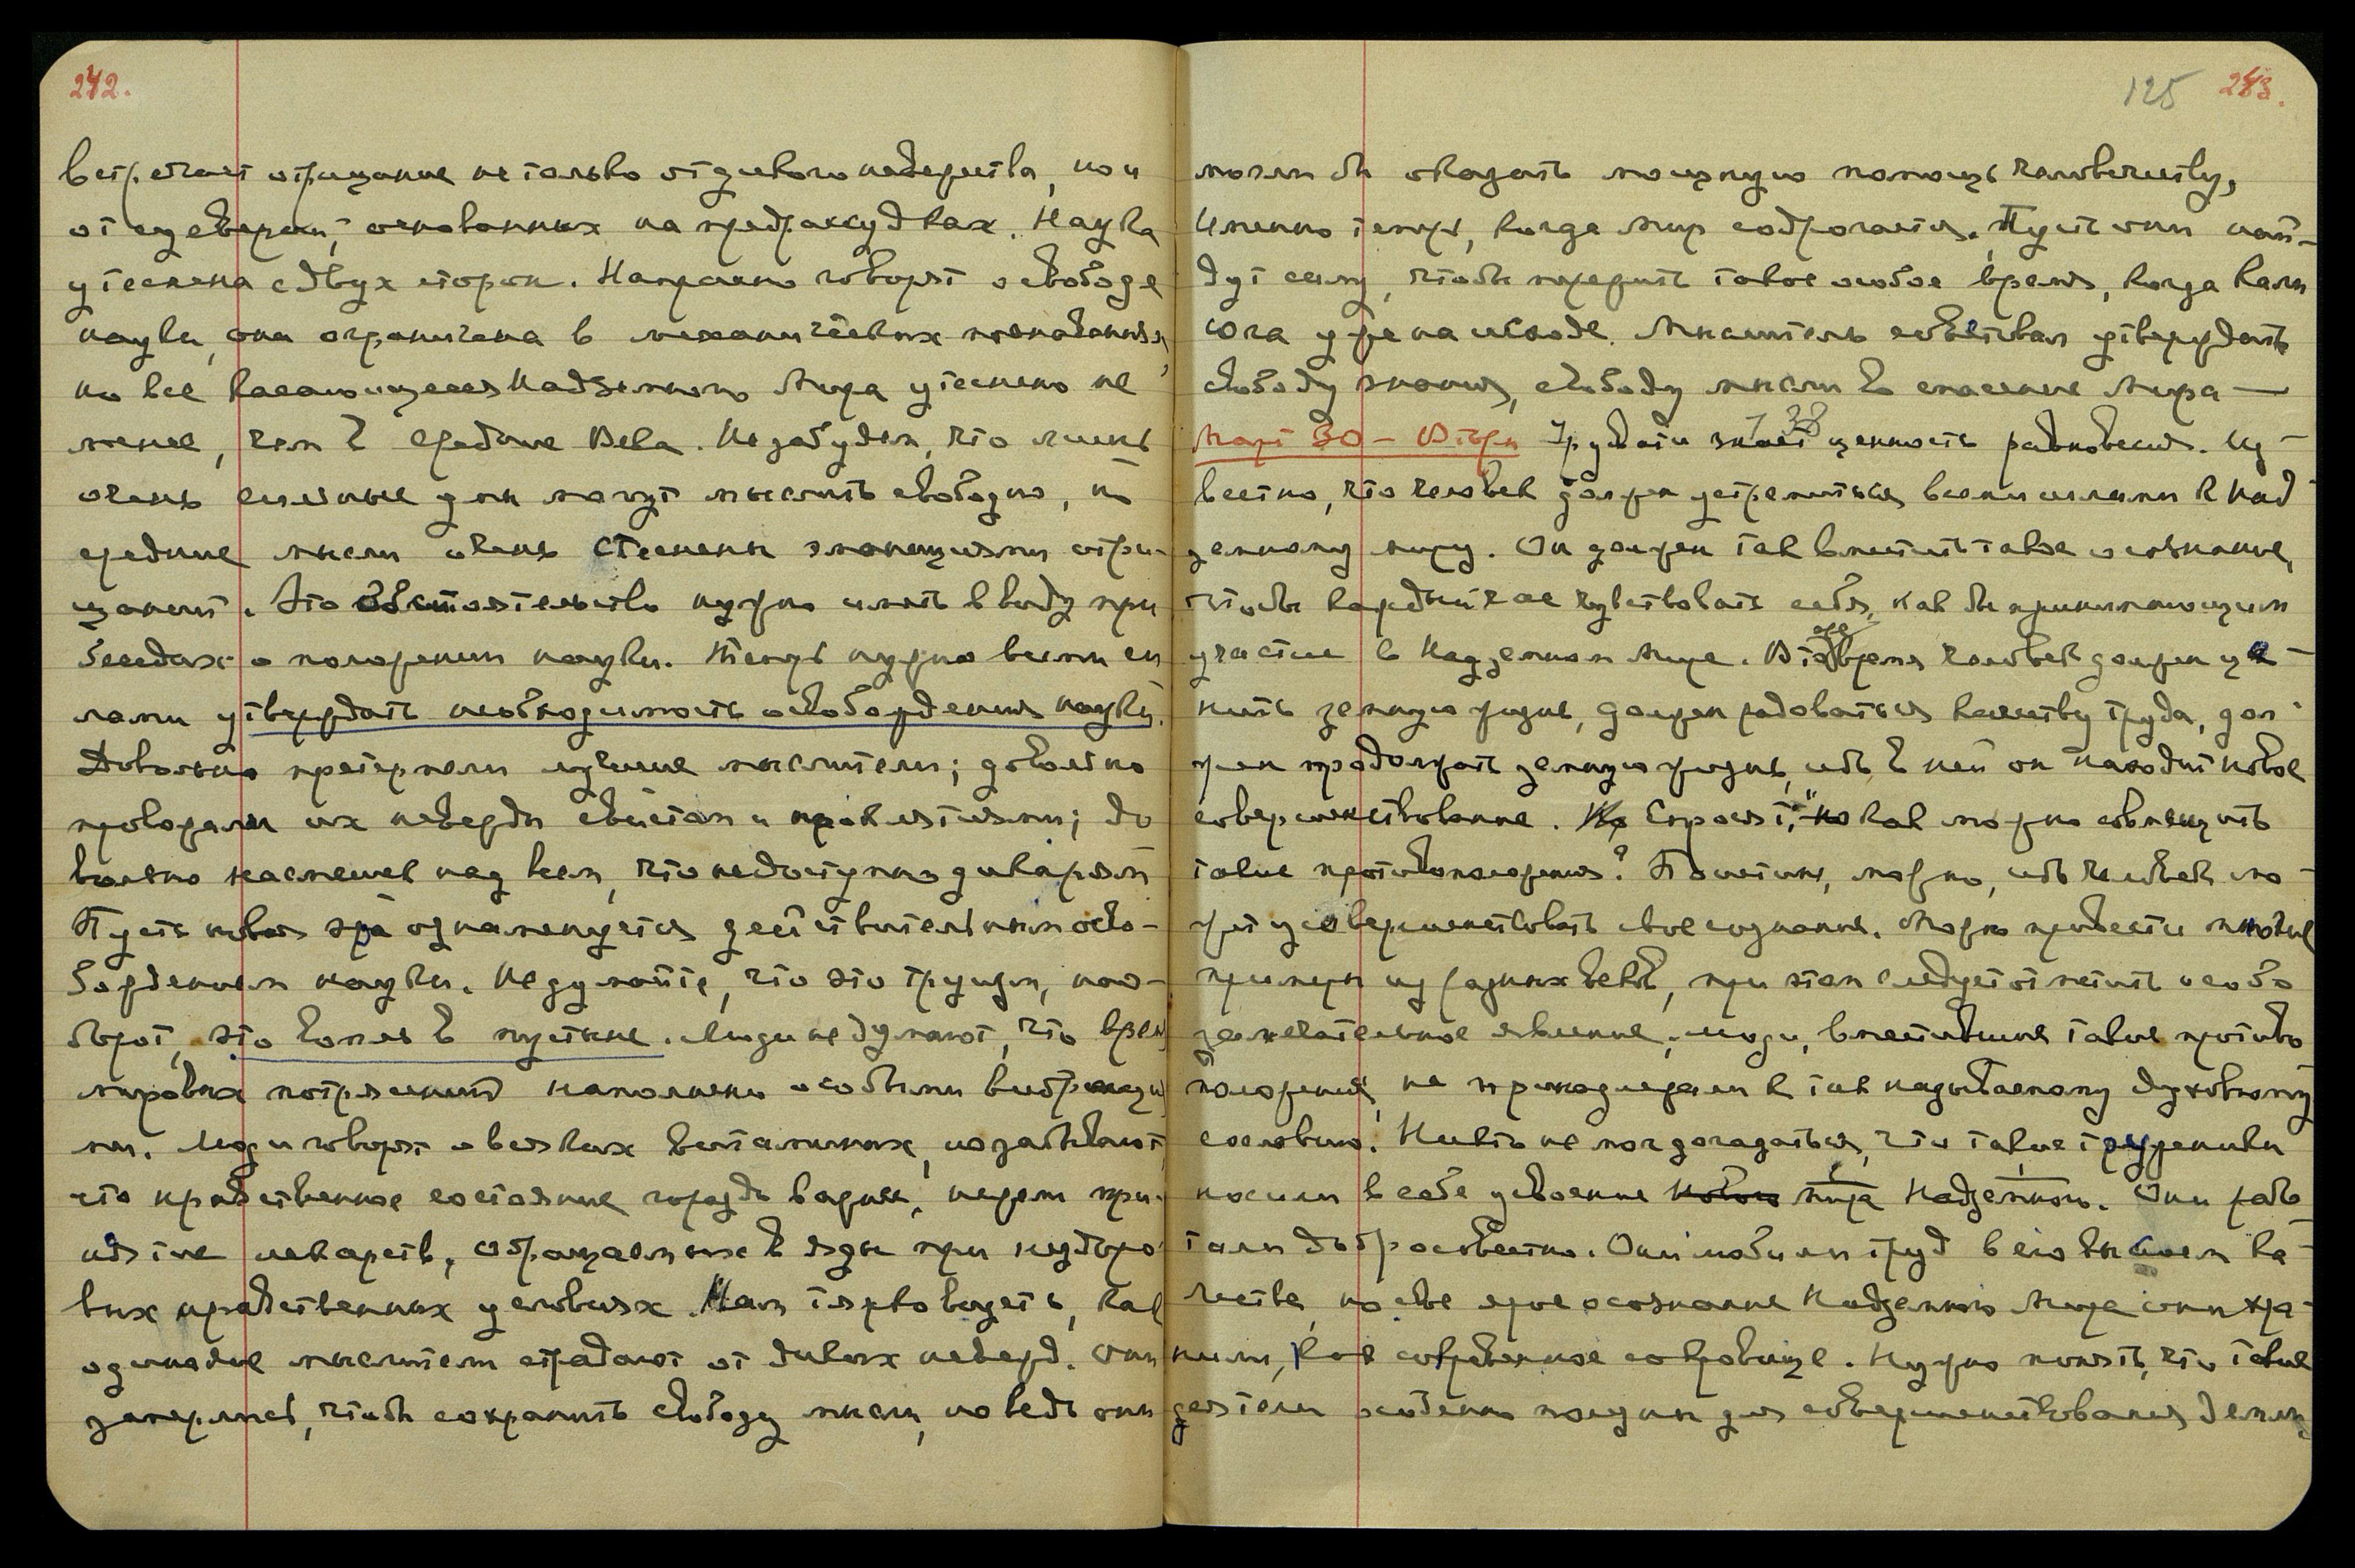 242.
встречает отрицание не только от дикого невежества, но и
от суеверий, основанных на предрассудках. Наука
утеснена с двух сторон. Напрасно говорят о свободе
науки, она ограничена в механических познаваниях,
но все касающееся Надземного Мира утеснено не
менее, чем в средние Века. Не забудем, что лишь
очень сильные умы могут мыслить свободно, но
средние мысли очень стеснены эманациями отри-
цаний. Это обстоятельство нужно иметь в виду при
беседах о положении науки. Теперь нужно всеми си
лами утверждать необходимость освобождения науки.
Довольно претерпели лучшие мыслители; довольно
провожали их невежды свистом и проклятиями; до
вольно насмешек над всем, что недоступно дикарям
Пусть новая эра ознаменуется действительным осво-
бождением науки. Не думайте, что это труизм, нао-
борот, это вопль в пустыне. Люди не думают, что время
мировых потрясений наполнено особыми вибрация
ми. Люди говорят о всяких витаминах, но забывают
что нравственное состояние гораздо важнее, нежели при-
нятие лекарств, обращаемых в яды при нездоро-
вых нравственных условиях. Нам тяжко видеть, как
одинокие мыслители страдают от диких невежд. Они
замерли, чтобы сохранить свободу мысли, но ведь они
125 243.
могли бы оказать мощную помощь человечеству,
именно теперь, когда мир содрогается. Пусть они най-
дут силу, чтобы пережить такое особое время, когда Кали
Юга уже на исходе. Мыслитель советовал утверждать
свободу знания, свободу мысли во спасение Мира —
Март 30 – Вторн Урусвати знает ценность равновесия. Из-
вестно, что человек должен устремиться всеми силами к Над
земному миру. Он должен так вместить такое осознание,
чтобы каждый час чувствовать себя как бы принимающим
участие в Надземном Мире. В то же время человек должен це-
нить земную жизнь, должен радоваться качеству труда, дол-
жен продолжать земную жизнь, ибо в ней он находит новое
совершенствование. Но Спросят: "но как можно совместить
такие противоположения? Поистине, можно, ибо человек мо-
жет усовершенствовать свое сознание. Можно привести многие
примеры из разных веков, при этом следует отметить особо
замечательное явление, люди, вместившие такие противо
положения, не принадлежали к так называемому духовному
сословию. Никто не мог догадаться, что такие труженики
носили в себе усвоение нового мира Надземного. Они рабо
тали добросовестно. Они любили труд в его высшем ка-
честве, но свое ярое осознание Надземного Мира они хра-
нили, как сокровенное сокровище. Нужно понять, что такие
деятели особенно полезны для совершенствования земли.